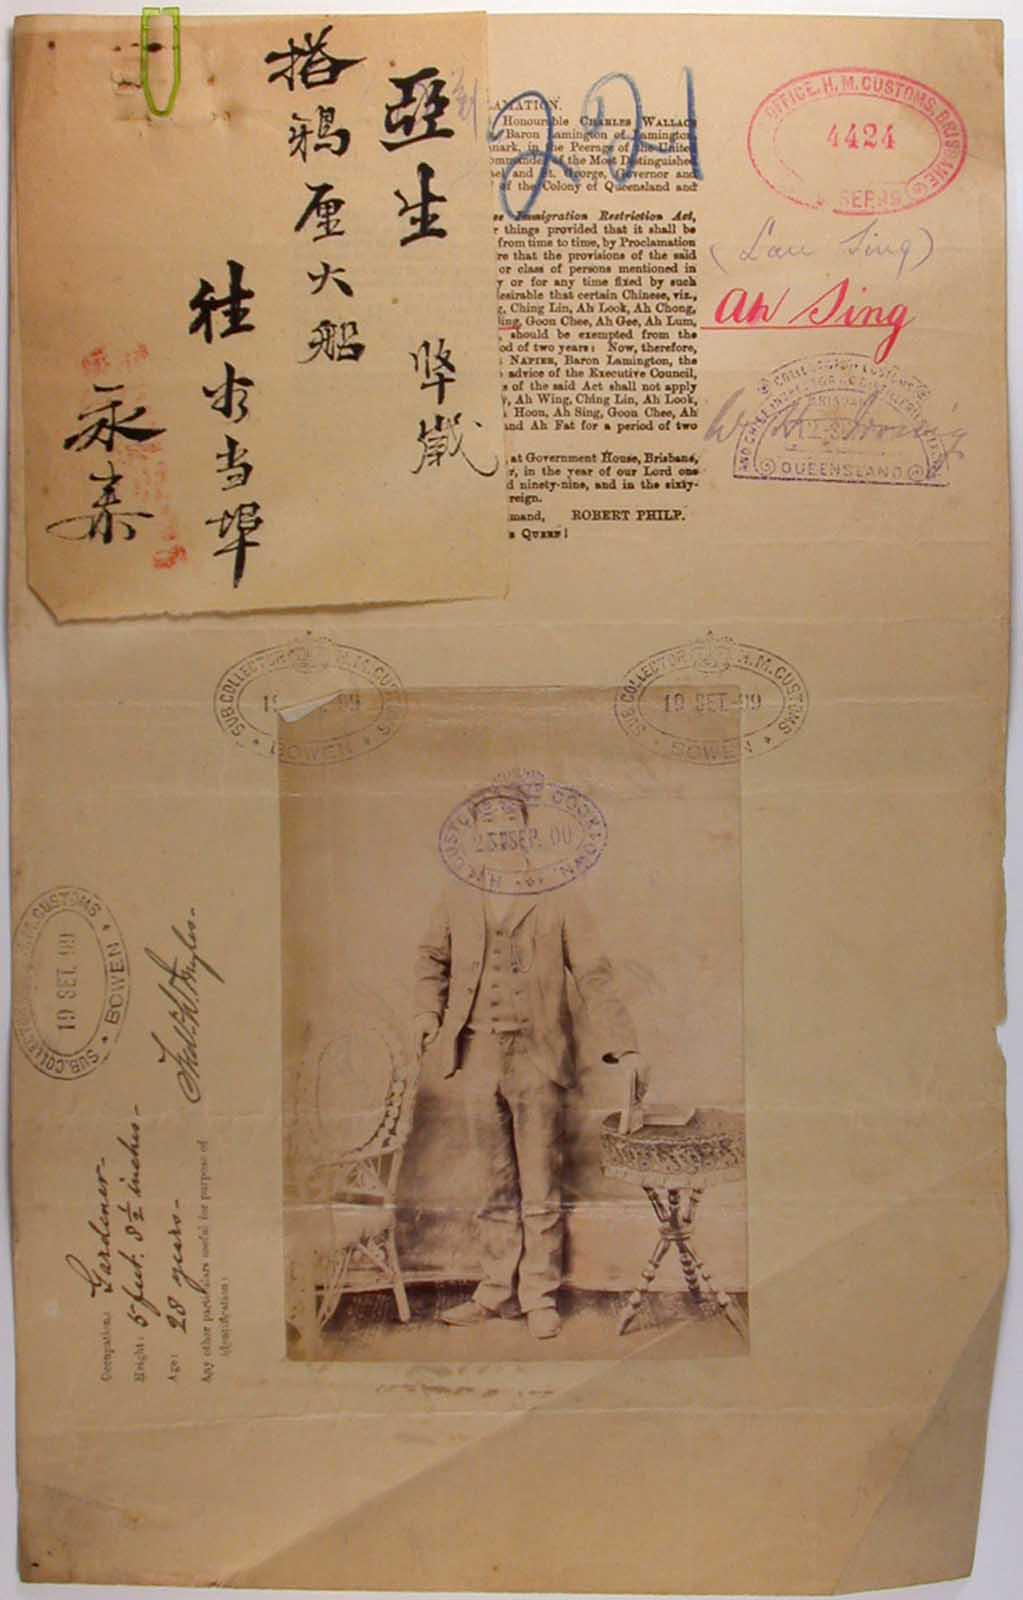 亞生
搭鴉厘火船
往 当埠
永泰
221
AMATION.
Honourable CHARLES WALLACE
Baron Lamington of Lamington
nark, in the Peerage of the United
ommander of the Most Distinguished
ael and St. George, Governor and
of the Colony of Queensland and
se Immigration Restriction Act,
r things provided that it shall be
from time to time, by Proclamation
re that the provisions of the said
or class of persons mentioned in
y or for any time fixed by such
esirable that certain Chinese, viz.,
g, Ching Lin, Ah Look, Ah Chong,
ing, Goon Chee, Ah Gee, Ah Lum,
, should be exempted from the
od of two years: Now, therefore,
NAPIER, Baron Lamington, the
advice of the Executive Council,
s of the said Act shall not apply
, Ah Wing, Ching Lin, Ah Look,
Hoon, Ah Sing, Goon Chee, Ah
and Ah Fat for a period of two
at Government House, Brisbane,
r, in the year of our Lord one
d ninety-nine, and in the sixty-
reign.
mand, ROBERT PHILP.
QUEEN!
OFFICE, H.M. CUSTOMS, BRISBANE
4424
SEP. 99
(Lau Sing)
Ah Sing
COLLECTOR OF CUSTOMS
BRISBANE
QUEENSLAND
SUB. COLLECTOR H.M. CUSTOMS
19 99
BOWEN
SUB. COLLECTOR H.M. CUSTOMS
19 SET. 99
BOWEN
H.M. CUSTOMS COOKTOWN.
SEP. 00
SUB. COLLECTOR H.M. CUSTOMS
19 SET. 99
BOWEN
Occupation: Gardener-
Height: 5 feet. 8 ½ inches-
Age: 28 years-
Any other particulars useful for purpose of
identification: